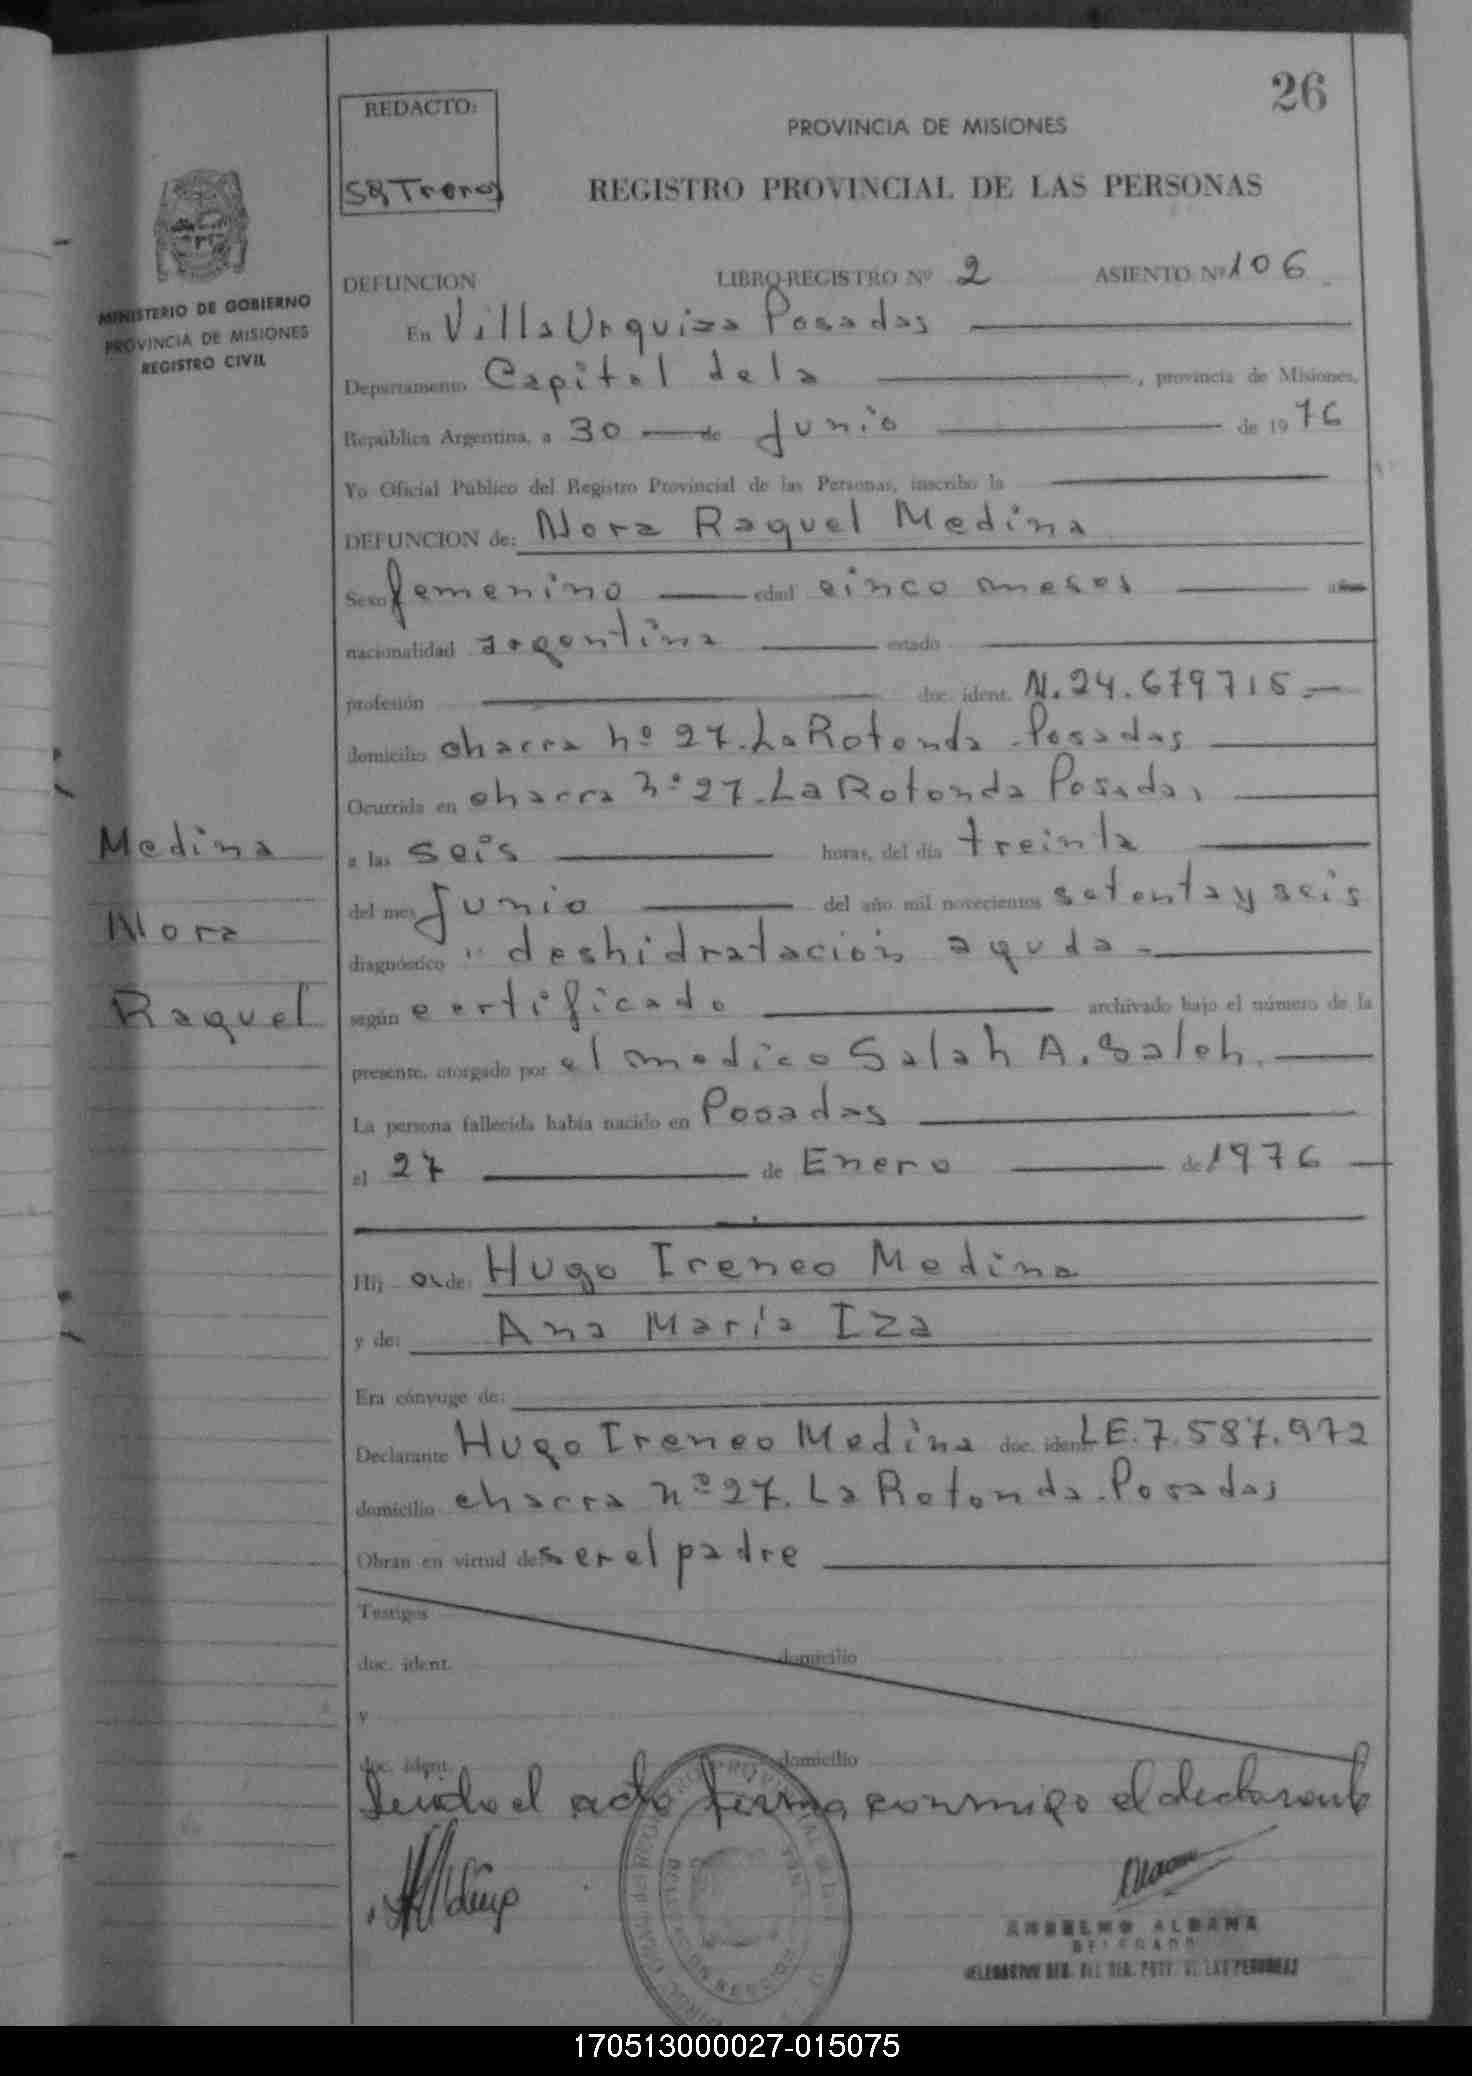 26
REDACTO:
PROVINCIA DE MISIONES
REGISTRO PROVINCIAL DE LAS PERSONAS
MINISTERIO DE GOBIERNO
PROVINCIA DE MISIONES
REGISTRO CIVIL
DEFUNCION LIBRO-REGISTRO Nº 2 ASIENTO Nº 106
En Villa Urquiza Posadas
Departamento Capital de la , provincia de Misiones,
República Argentina, a 30 de Junio de 1976
Yo Oficial Público del Registro Provincial de las Personas, inscribo la
DEFUNCION de: Nora Raquel Medina
Sexo femenino edad cinco meses
nacionalidad argentina estado
profesión doc. ident. N. 24.679715.-
domicilio chacra nº 27. La Rotonda - Posadas
Ocurrida en chacra nº 27. La Rotonda Posadas
a las seis horas, del día treinta
del mes Junio del año mil novecientos setenta y seis
diagnóstico " deshidratación aguda -
según certificado archivado bajo el número de la
presente, otorgado por el medico Salah A. Saleh.
La persona fallecida había nacido en Posadas
el 27 de Enero de 1976
Hij a de: Hugo Ireneo Medina
y de: Ana María Iza
Era cónyuge de:
Declarante Hugo Ireneo Medina doc. ident. LE. 7.587.972
domicilio chacra nº 27. La Rotonda. Posadas
Obran en virtud de ser el padre
Testigos
doc. ident. domicilio
y
doc. ident. domicilio
Leido el acto firma conmigo el declarante
Medina
Nora
Raquel
ANSELMO ALDANA
DELEGADO
170513000027-015075